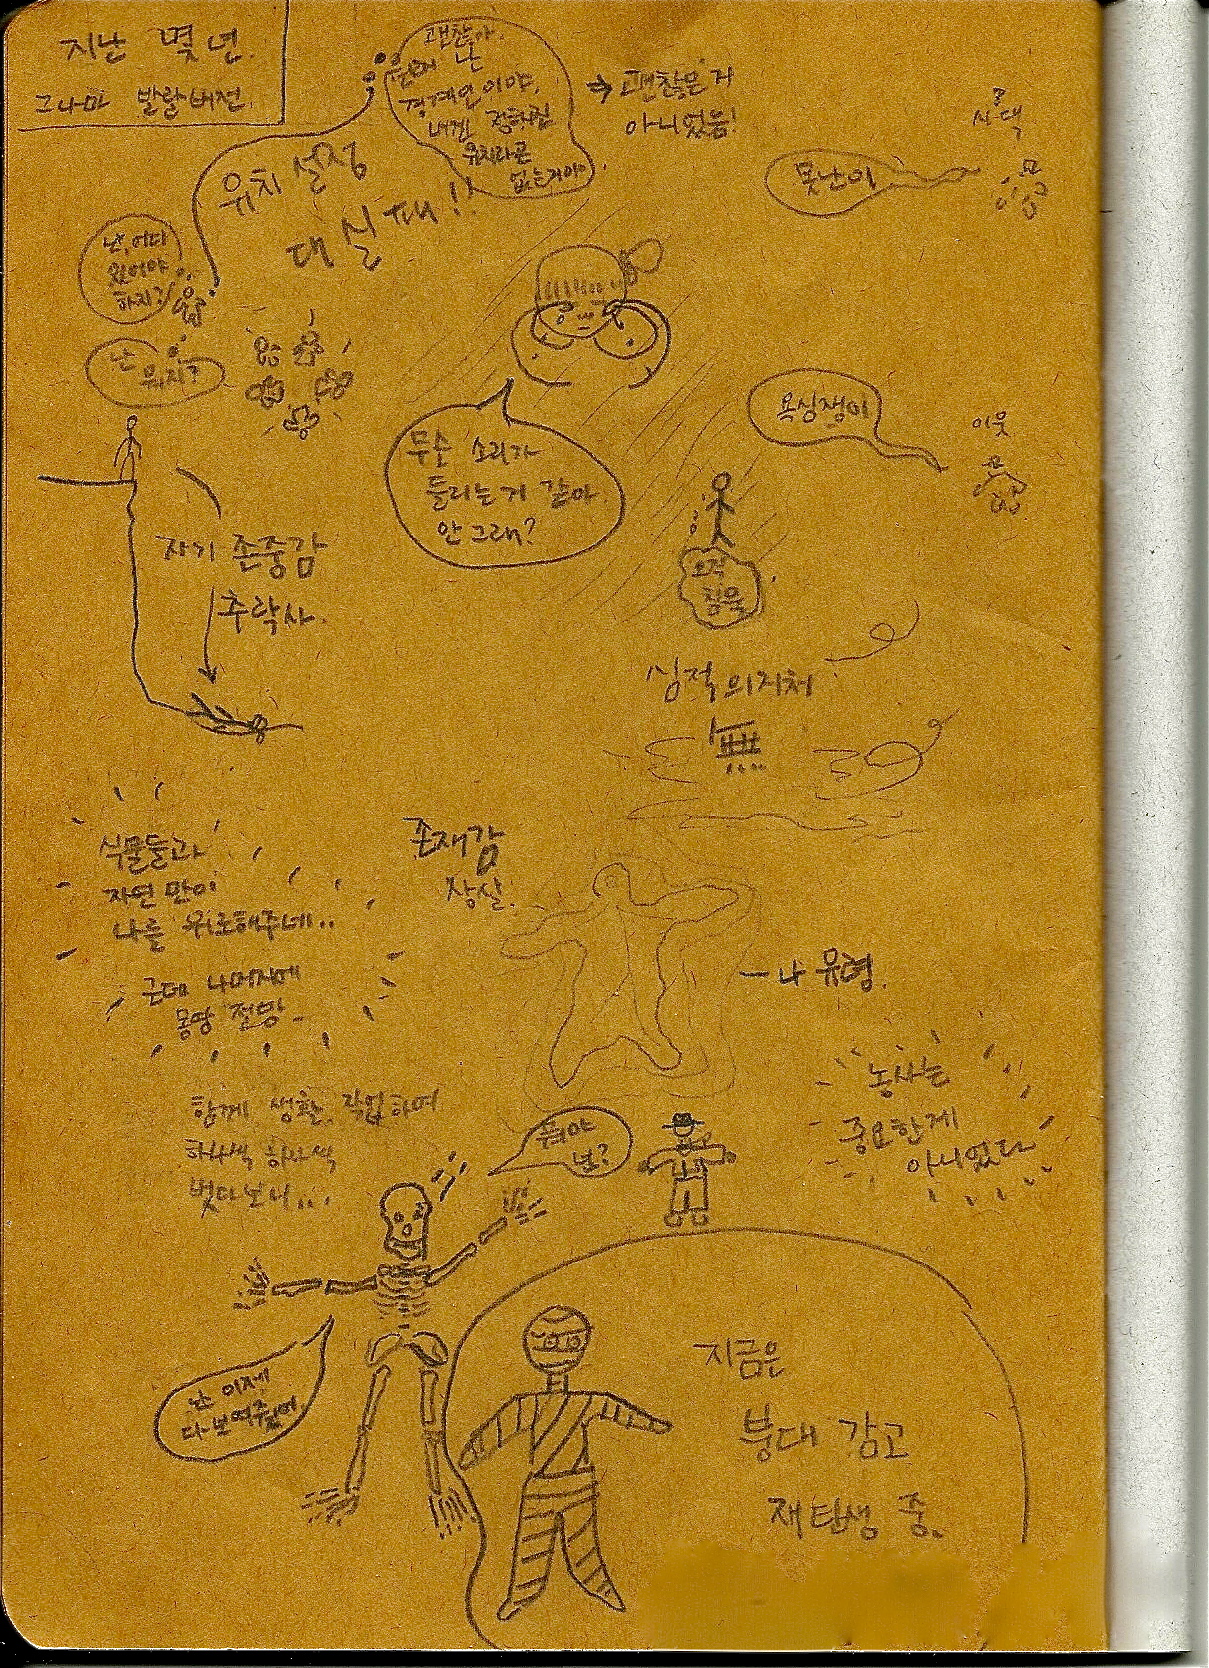 지난 몇 년.
그나마 발랄버전.
괜찮아.
원래 난
경계인이야,
내게 정해진
위치라곤
없는거야.
→ 괜찮은 거
아니었음!
위치 설정
대 실 패!!
난, 어디
있어야
하지?
난
뭐지?
시댁
못난이
무슨 소리가
들리는 거 같아
안 그래?
욕심쟁이
이웃
자기 존중감
추락사.
조각
침몰
심적 의지처
無
식물들과
자연 만이
나를 위로해주네..
근데 나머지에
몽땅 절망_
존재감
상실.
나 유령.
농사는
중요한게
아니었다
함께 생활, 작업하며
하나씩 하나씩
벗다보니...
뭐야
넌?
난 이제
다 보여줬어.
지금은
붕대 감고
재탄생 중.